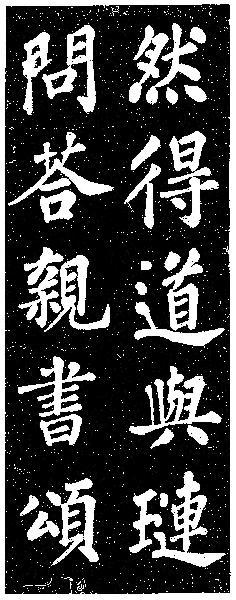 然得道與璉
問荅親書頌